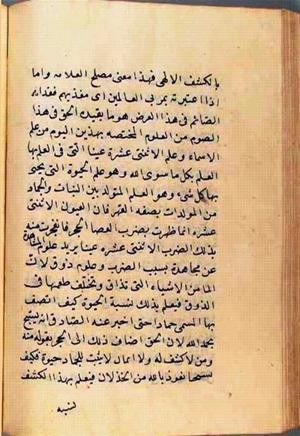 بالكشف الالهي فهذا معنى مصلح العلامة واما
اذا اعتبرته بمربى العالمين اى مغذيهم فغذاء
الصائم فى هذا الغرض هو ما يفيده الحق فى هذا
الصوم من العلوم المختصه بهذين اليوم من علم
الاسماء وعلم الاثنتى عشرة عينا التى فى العلم بها
العلم بكل ما سوى الله وهو علم الحيوة التى يحيى
بها كل شى وهو العلم المتولد بين النبات والجماد
من المولدات بصفه القهر فان العيون الاثنتى
عشرة انما ظهرت بضرب العصا الحجر فانفجرت منه
بذلك الضرب اثنتى عشرة عينا يريد علوم المشاهدة
عن مجاهدة بسبب الضرب وعلوم ذوق لان
الما من الاشياء التى تذاق ويختلف طعمها فى
الذوق فيعلم بذلك نسبة الحيوة كيف اتصف
بها المسمى جمادا حتى اخبر عنه الصادق انه يسبح
بحمد الله لان الحق اضاف ذلك الى الحجر بقوله منه
ومن لا كشف له ولا ايمان لا يثبت للجماد حيوة فكيف
تسبيحا نعوذ بالله من الخذلان فيعلم بهذا الكشف
نسبه